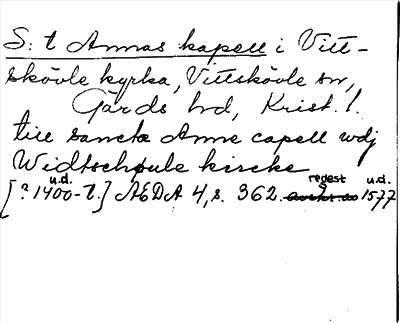 S:t Annas kapell i Vitt-
skövle kyrka, Vittskövle sn,
Gärds hd, Krist. l.
till sancte Anne capell wdj
Widtschøule kircke
[? u.d. 1400-t.] ÆDA 4, s. 362. regest u.d. 1577